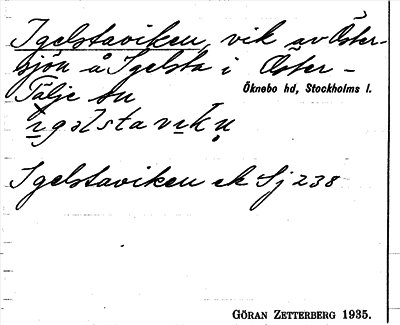 Igelstaviken, vik av Öster-
sjön å Igelsta i Öster-
Tälje sn
Öknebo hd, Stockholms l.
Igelstaviken ek Sj 238
GÖRAN ZETTERBERG 1935.